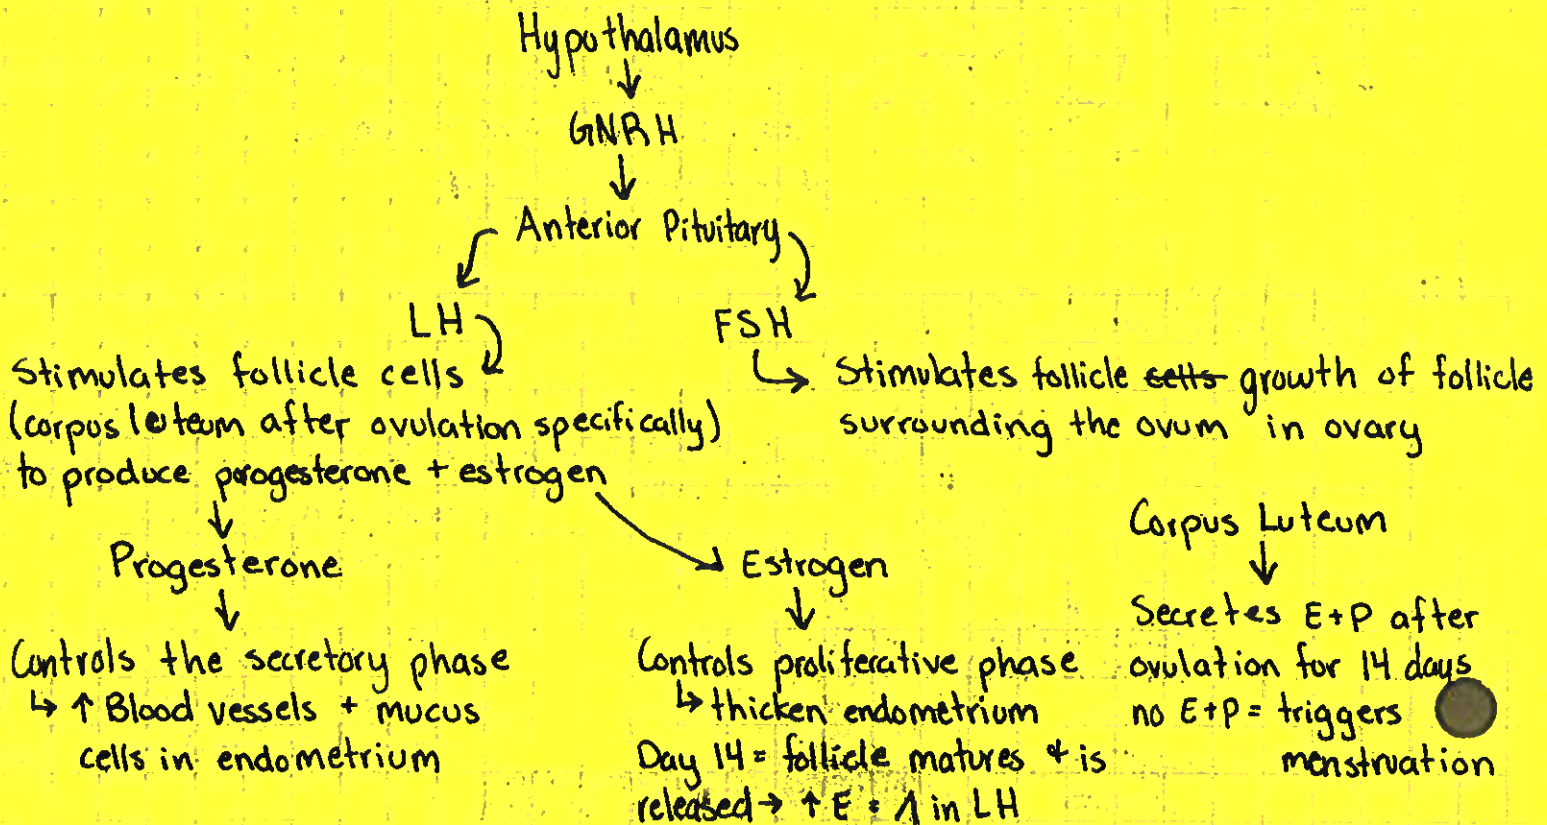 Hypothalamus
↓
GNRH
↓
Anterior Pituitary
LH
FSH
Stimulates follicle cells
(corpus luteum after ovulation specifically)
to produce progesterone + estrogen
↳ Stimulates follicle ~~cells~~ growth of follicle
surrounding the ovum in ovary
↓
Progesterone
↓
Controls the secretory phase
↳ ↑ Blood vessels + mucus
cells in endometrium
Estrogen
↓
Controls proliferative phase
↳ thicken endometrium
Day 14 = follicle matures & is
released → ↑ E = ↑ in LH
Corpus Luteum
↓
Secretes E+P after
ovulation for 14 days
no E+P = triggers
menstruation